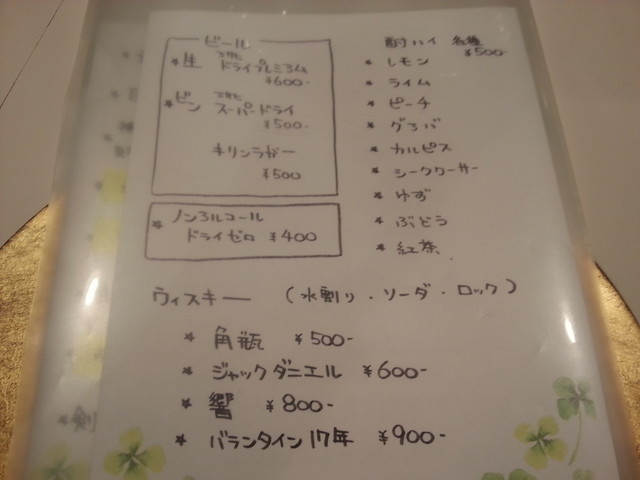 ビール
* 生 アサヒ
ドライプレミアム
¥600-
* ビン アサヒ
スーパードライ
¥500-
キリンラガー
¥500
* ノンアルコール
ドライゼロ ¥400
酎ハイ 各種
¥500-
* レモン
* ライム
* ピーチ
* グアバ
* カルピス
* シークワーサー
* ゆず
* ぶどう
* 紅茶
ウィスキー (水割り・ソーダ・ロック)
* 角瓶 ¥500-
* ジャックダニエル ¥600-
* 響 ¥800-
* バランタイン17年 ¥900-